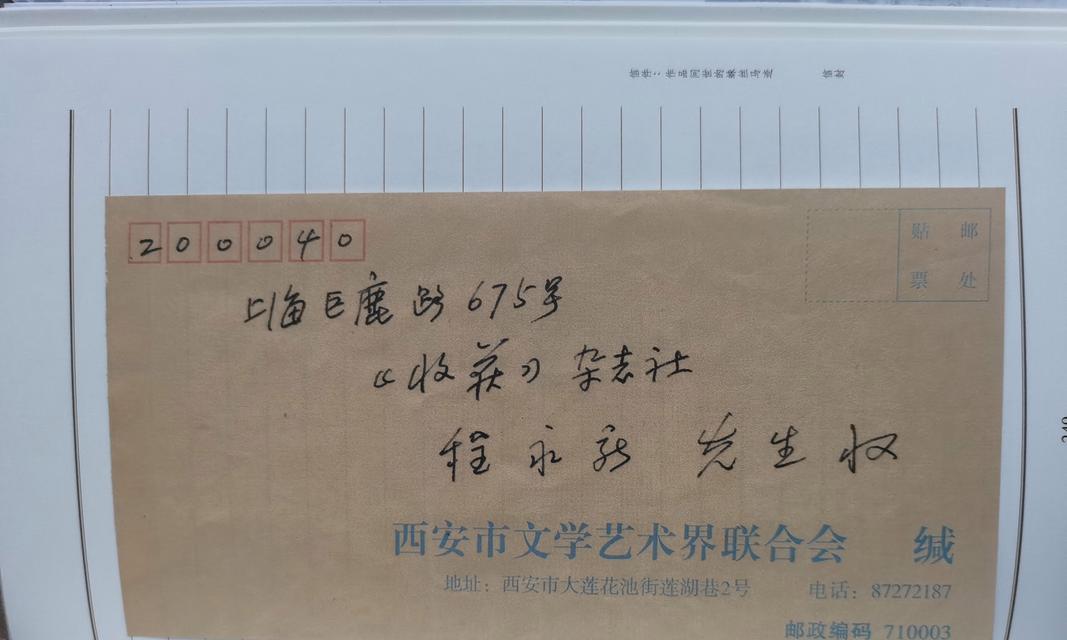 200040
贴 邮
票 处
上海巨鹿路675号
《收获》杂志社
程永新 先生收
西安市文学艺术界联合会 缄
地址：西安市大莲花池街莲湖巷2号 电话：87272187
邮政编码 710003